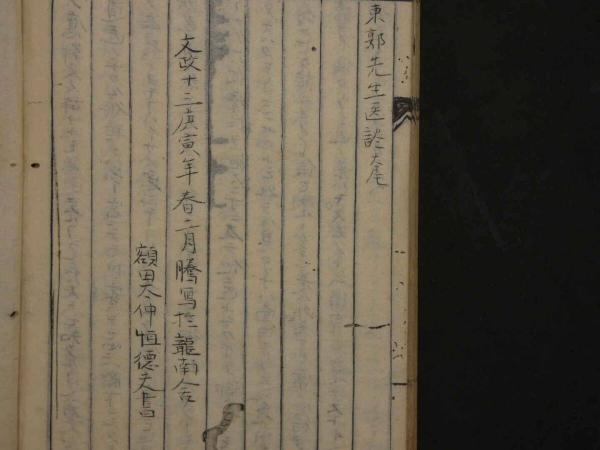 東郭先生医談大尾
文政十三庚寅年春二月騰写於龍南舎
額田太仲恒徳夫書